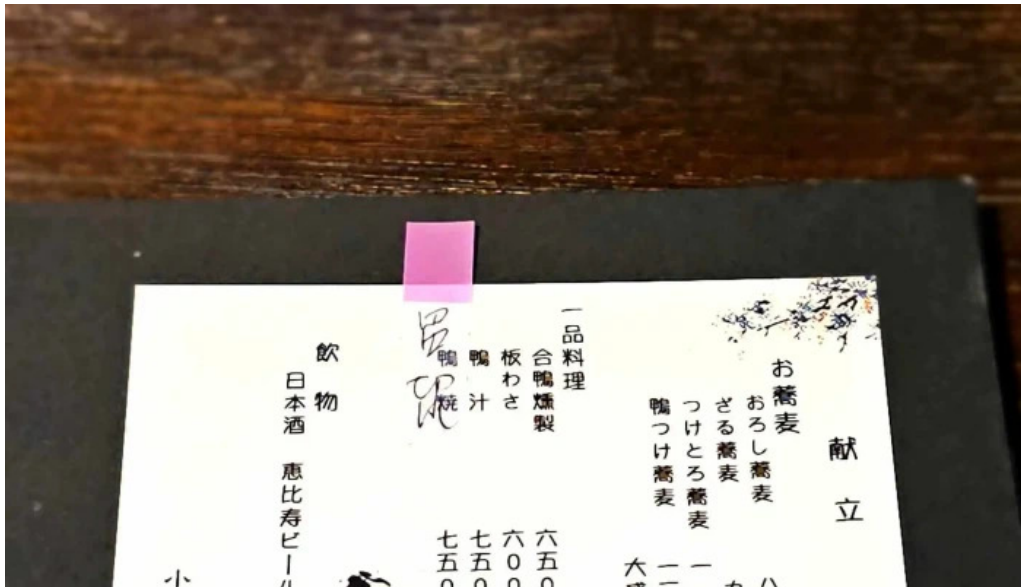 献立
お蕎麦
おろし蕎麦
ざる蕎麦
つけとろ蕎麦
鴨つけ蕎麦
大
一品料理
合鴨燻製 六五０
板わさ 六００
鴨汁 七五０
鴨焼 七五０
飲物
日本酒 恵比寿ビール
小